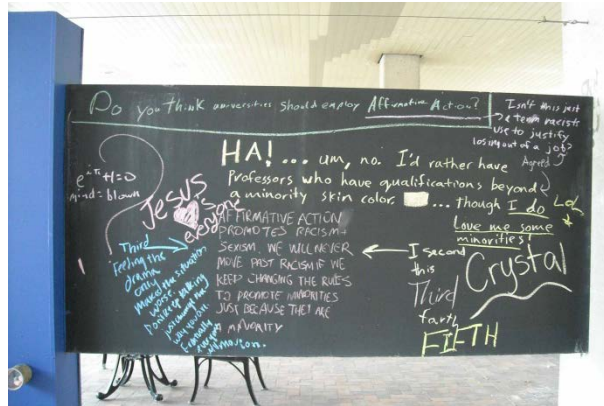 Do you think universities should employ Affirmative Action?
Isn't this just
a term racists
use to justify
losing out of a job?
Agreed
Lol
e^iπ+1=0
mind = blown
Jesus
♥s
everyone
HA!... um, no. I'd rather have
Professors who have qualifications beyond
a minority skin color ... though I do
Love me some
minorities!
Crystal
AFFIRMATIVE ACTION
PROMOTES RACISM +
SEXISM. WE WILL NEVER
MOVE PAST RACISM IF WE
KEEP CHANGING THE RULES
TO PROMOTE MINORITIES
JUST BECAUSE THEY ARE
A MINORITY
← I second
this
Third
forth
FIFTH
Third
Feeling the
drama
only
makes the situation
worse.
Don't keep talking
just change the
way you are
Eventually
everyone